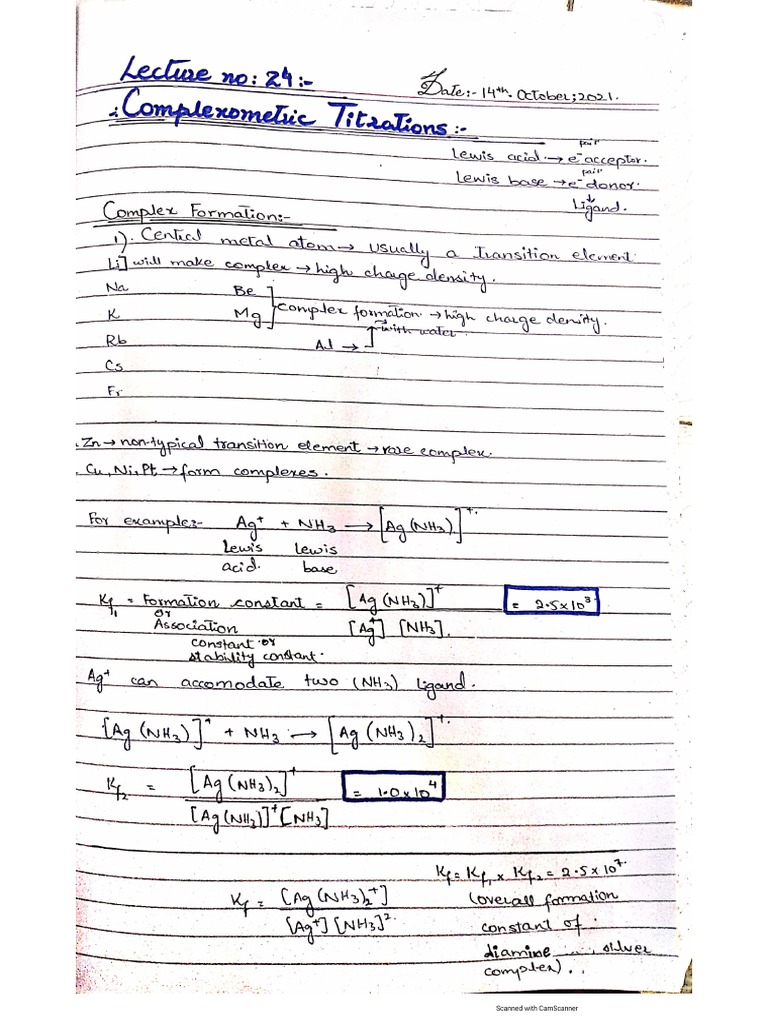 Lecture no: 24:-
Date:- 14th. October; 2021.
Complexometric Titrations:-
Lewis acid → e⁻ pair acceptor.
Lewis base → e⁻ pair donor.
↓
Ligand.
Complex Formation:-
1). Central metal atom → usually a transition element
Li] will make complex → high charge density.
Na Be
K Mg ] complex formation → high charge density.
Rb Al → with water
Cs
Fr
. Zn → non-typical transition element → rare complex.
. Cu, Ni, Pt → form complexes.
For example:- Ag⁺ + NH₃ → [Ag(NH₃)]⁺.
Lewis Lewis
acid. base
Kf₁ = Formation constant = [Ag(NH₃)]⁺ / [Ag⁺] [NH₃]. = 2.5×10³
or
Association
constant or
stability constant.
Ag⁺ can accomodate two (NH₃) ligand.
[Ag(NH₃)]⁺ + NH₃ → [Ag(NH₃)₂]⁺.
Kf₂ = [Ag(NH₃)₂]⁺ / [Ag(NH₃)]⁺[NH₃] = 1.0×10⁴
Kf = [Ag(NH₃)₂⁺] / [Ag⁺][NH₃]².
Kf = Kf₁ × Kf₂ = 2.5×10⁷.
(overall formation
constant of
diamine silver
complex).
Scanned with CamScanner